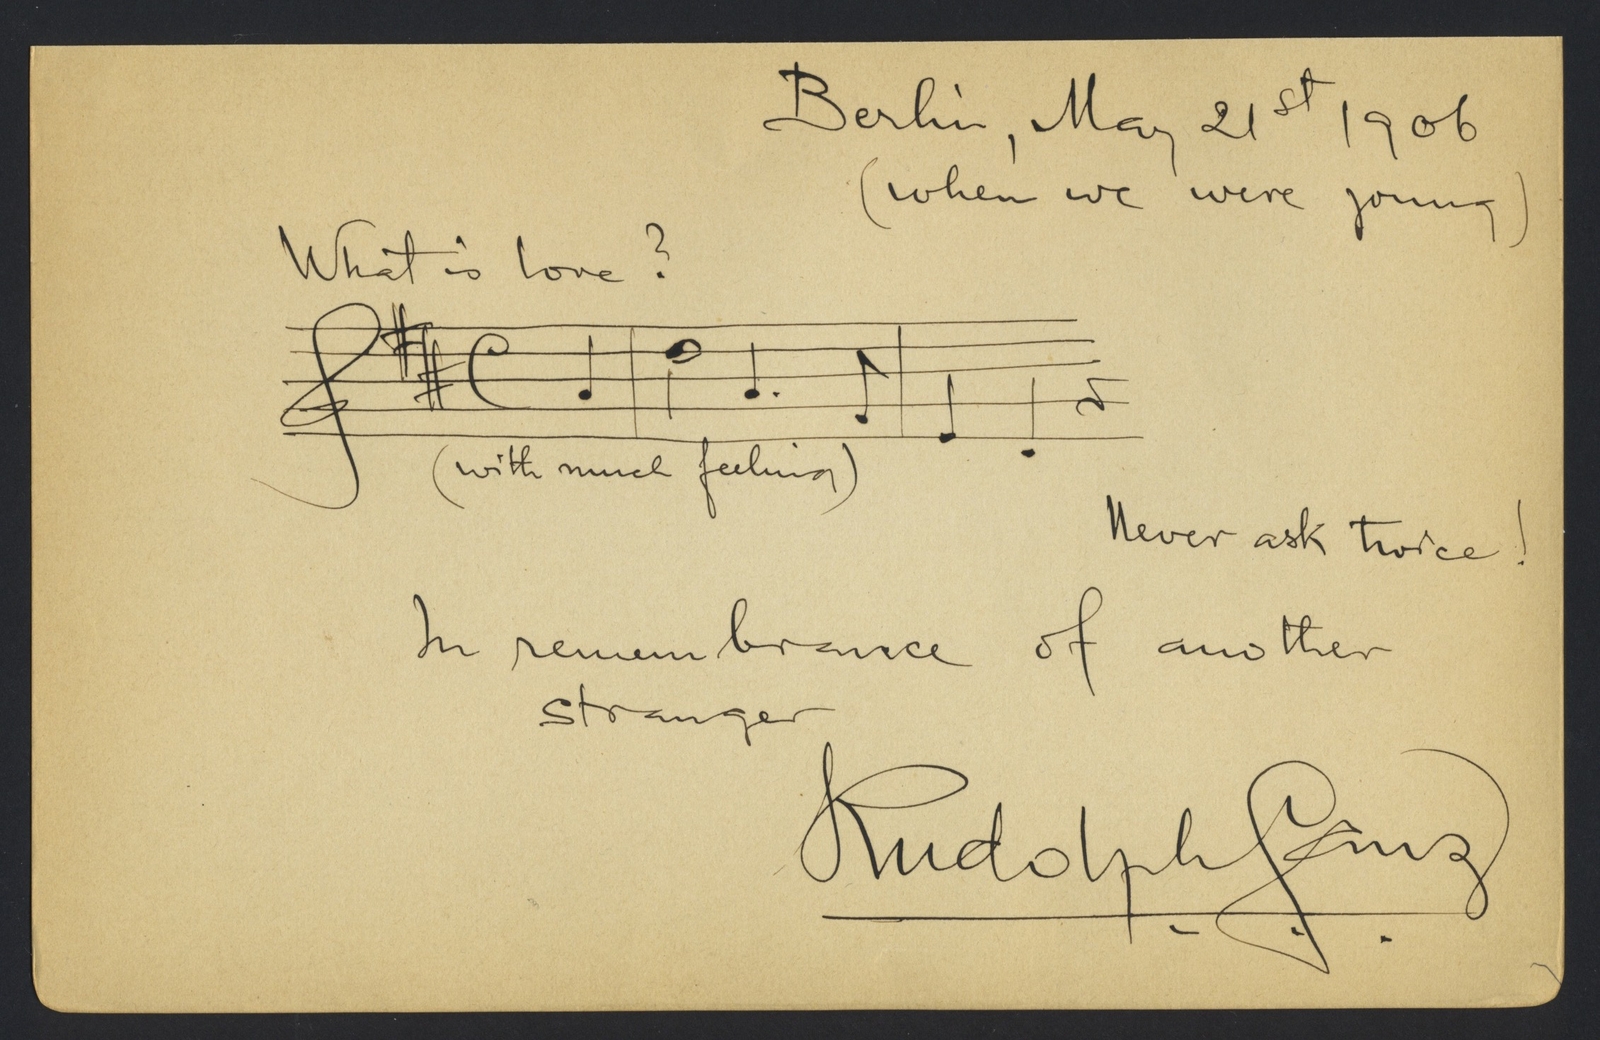 Berlin, May 21st 1906
(when we were young)
What is love?
(with much feeling)
Never ask twice!
In remembrance of another
stranger
Rudolph Ganz